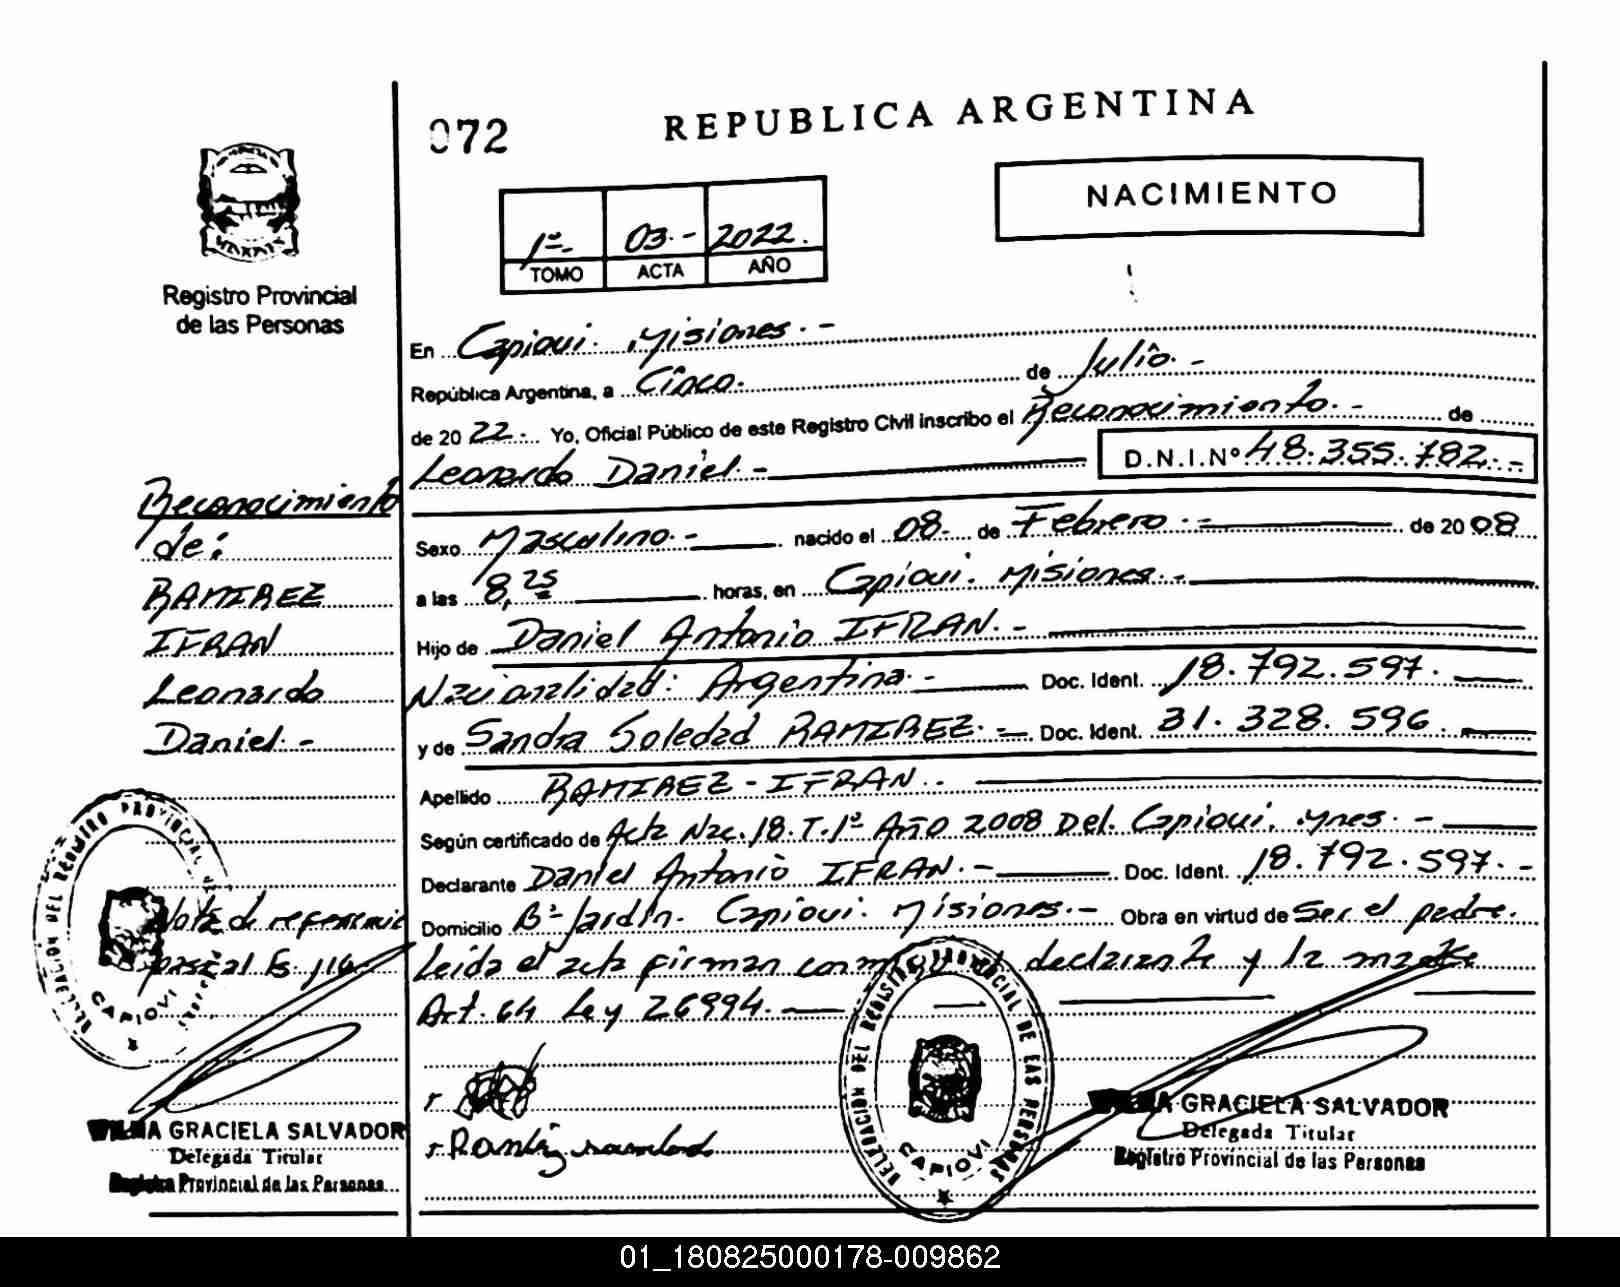 072
REPUBLICA ARGENTINA
NACIMIENTO
1º- 03.- 2022.
TOMO ACTA AÑO
Registro Provincial
de las Personas
En Capiovi. Misiones.-
República Argentina, a Cinco. de Julio.-
de 20 22.- Yo, Oficial Público de este Registro Civil inscribo el Reconocimiento.- de
Leonardo Daniel.- D.N.I.Nº 48.355.782.-
Sexo Masculino.- nacido el 08- de Febrero.- de 20 08
a las 8,25 horas, en Capiovi. Misiones.-
Hijo de Daniel Antonio IFRAN.-
Nacionalidad: Argentina.- Doc. Ident. 18.792.597.
y de Sandra Soledad RAMIREZ.- Doc. Ident. 31.328.596.
Apellido RAMIREZ - IFRAN.-
Según certificado de Acta Nac. 18. T. 1º Año 2008 Del. Capiovi. Mnes.-
Declarante Daniel Antonio IFRAN.- Doc. Ident. 18.792.597.-
Domicilio Bº Jardín. Capiovi. Misiones.- Obra en virtud de Ser el padre.
Leida el acta firman conmigo el declarante y la madre
Art. 64 Ley 26994.
Reconocimiento
de:
RAMIREZ
IFRAN
Leonardo
Daniel.-
Nota de referencia
DELEGACION DEL REGISTRO PROVINCIAL
CAPIOVI
GRACIELA SALVADOR
Delegada Titular
Registro Provincial de las Personas
DELEGACION DEL REGISTRO PROVINCIAL DE LAS PERSONAS
CAPIOVI
GRACIELA SALVADOR
Delegada Titular
Registro Provincial de las Personas
01_180825000178-009862